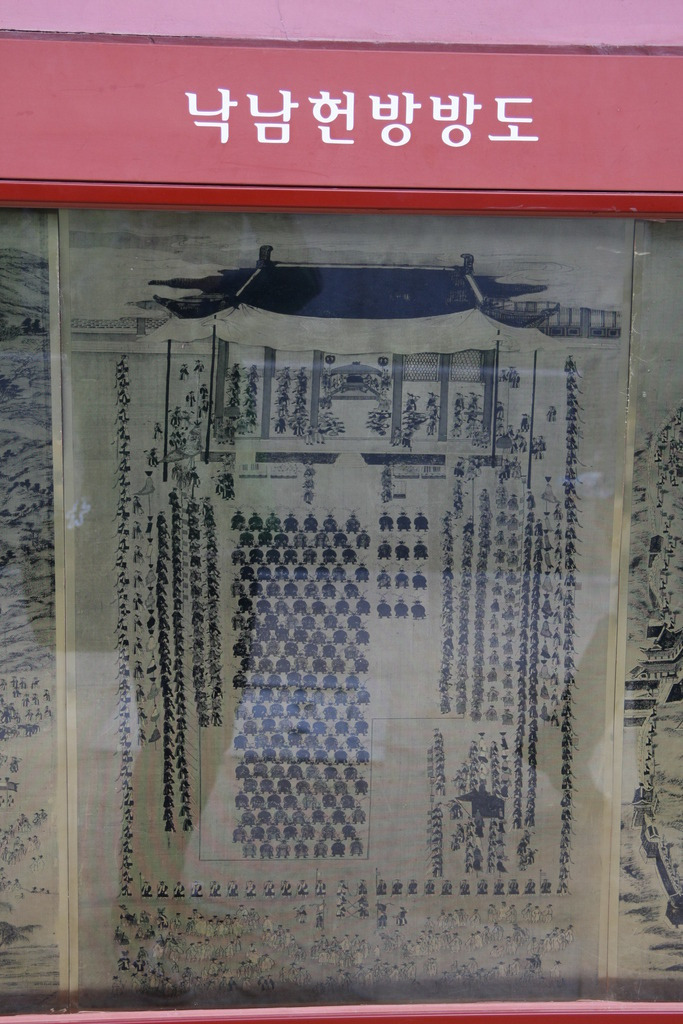 낙남헌방방도